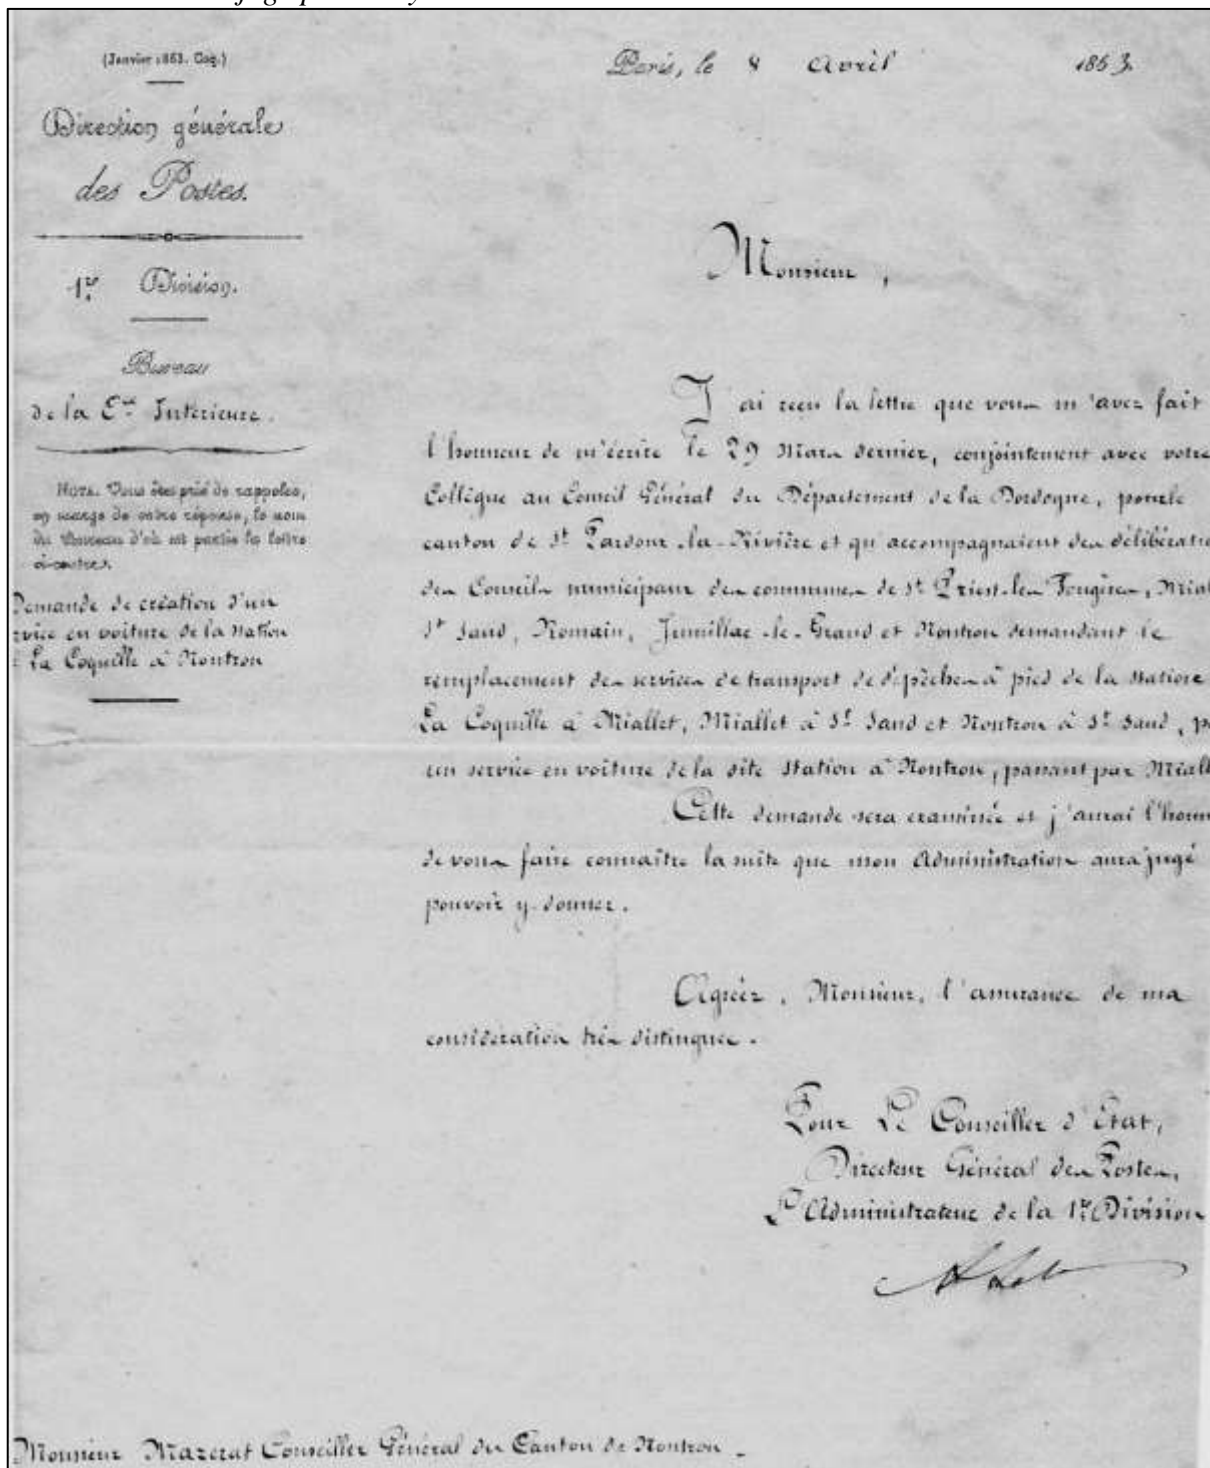 (Janvier 1863. Coq.)
Paris, le 8 Avril 1863.
Direction générale
des Postes.
1re Division.
Bureau
de la Cce Intérieure.
NOTA. Vous êtes prié de rappeler,
en marge de votre réponse, le nom
du Bureau d'où est partie la lettre
ci-contre.
Demande de création d'un
rvice en voiture de la station
La Coquille à Nontron
Monsieur,
J'ai reçu la lettre que vous m'avez fait
l'honneur de m'écrire le 29 Mars dernier, conjointement avec votre
Collègue au Conseil Général du Département de la Dordogne, pour le
canton de St Pardoux-la-Rivière et qu'accompagnaient des délibératio
des Conseils municipaux des communes de St Priest-les-Fougères, Mial
St Saud, Romain, Jumillac-le-Grand et Nontron demandant le
remplacement des services de transport de dépêches à pied de la station
La Coquille à Miallet, Miallet à St Saud et Nontron à St Saud, p
un service en voiture de la dite station à Nontron, passant par Miall
Cette demande sera examinée et j'aurai l'honn
de vous faire connaître la suite que mon Administration aura jugé
pouvoir y donner.
Agréez, Monsieur, l'assurance de ma
considération très distinguée.
Pour Le Conseiller d'État,
Directeur Général des Postes,
L'Administrateur de la 1re Division
Monsieur Mazerat Conseiller Général du Canton de Nontron